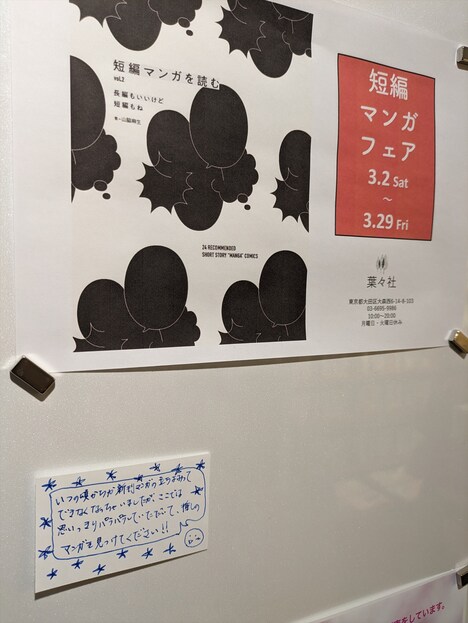 短編マンガを読む
vol.2
長編もいいけど
短編もね
24 RECOMMENDED
SHORT STORY "MANGA" COMICS
短編
マンガ
フェア
3.2 Sat
～
3.29 Fri
葉々社
東京都大田区大森西6-14-8-103
03-6695-9986
10:00〜20:00
月曜日・火曜日休み
いつの頃からか新刊マンガの立ちよみって
できなくなっちゃいましたが、ここでは
思いっきりパラパラしていただいて、推しの
マンガを見つけてください!!
をしています。